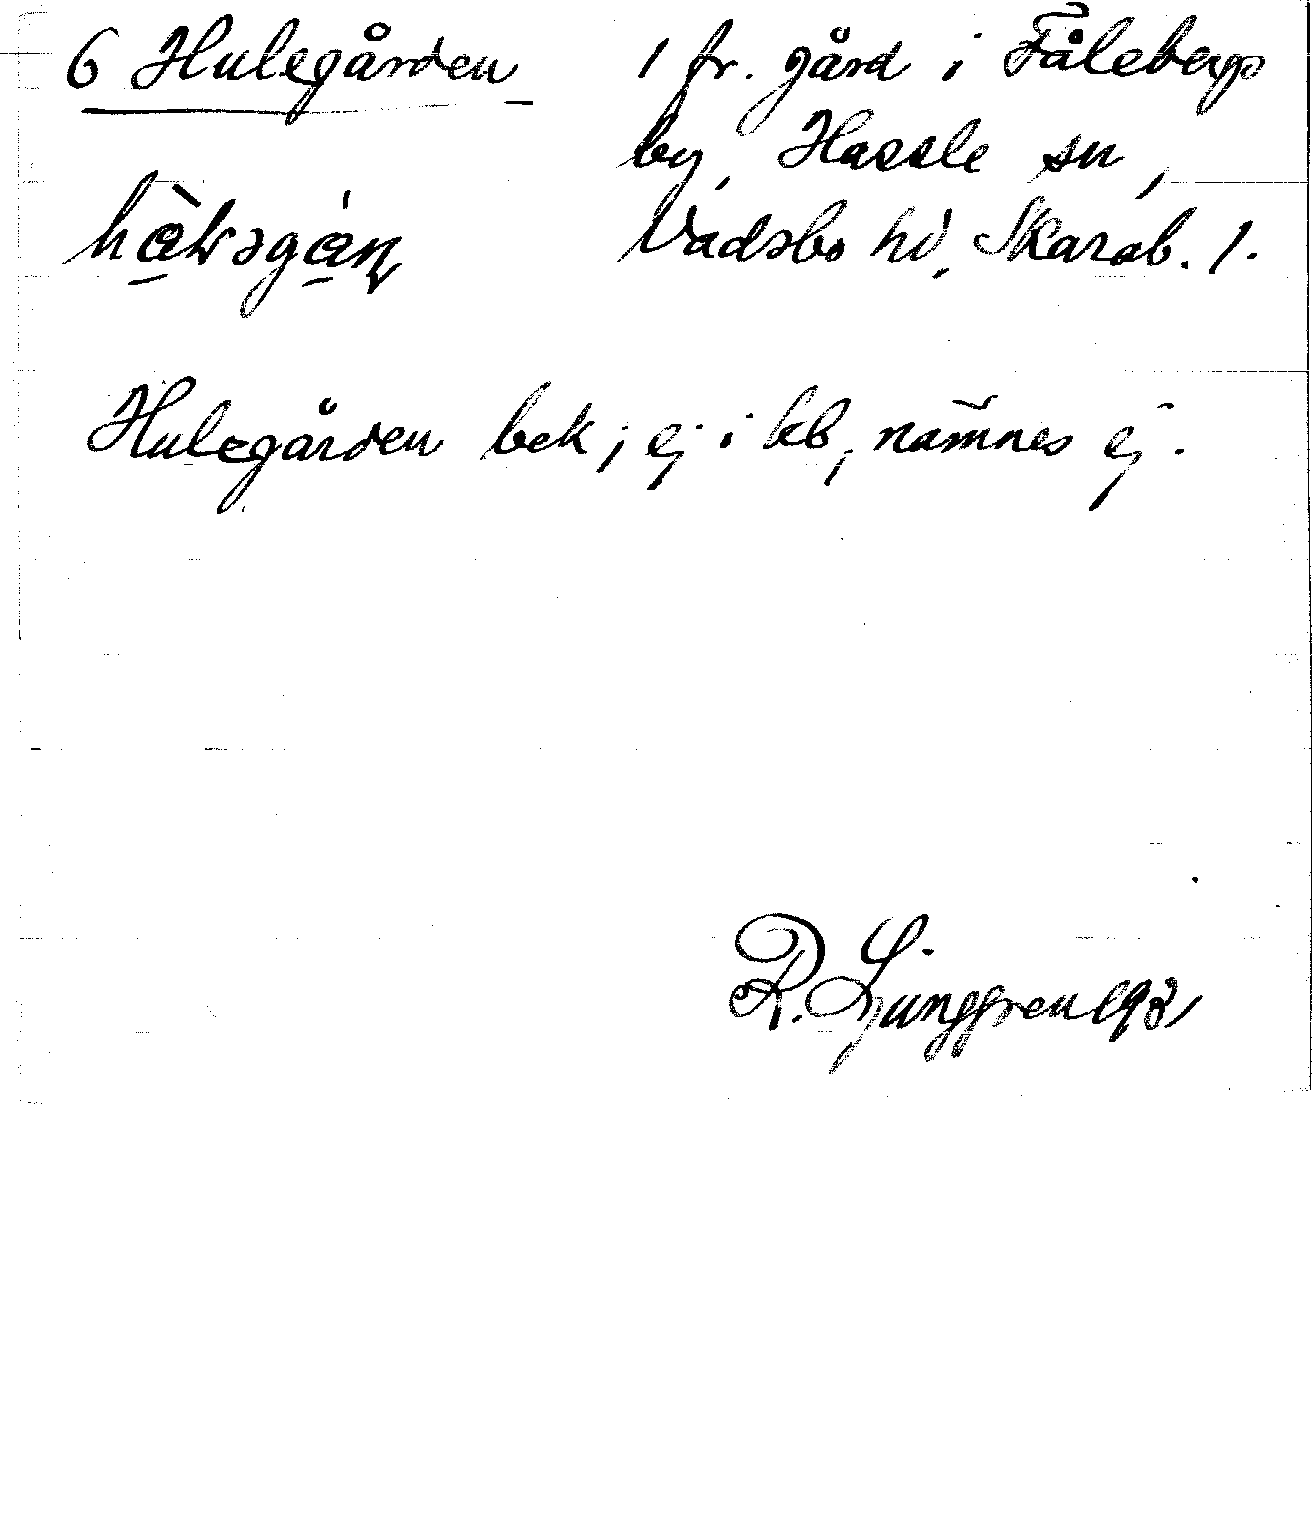 6 Hulegården 1 fr. gård i Fåleberg
by, Hassle sn,
Vadsbo hd, Skarab. l.
Hulegården bek; ej i kb, nämnes ej.
R. Ljunggren 1931